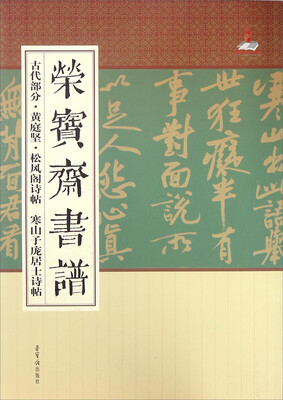 寒山出
世狂癡半有
事對面說所
以足人怨心直
榮寶齋書譜
古代部分·黄庭坚·松风阁诗帖 寒山子庞居士诗帖
荣宝斋出版社